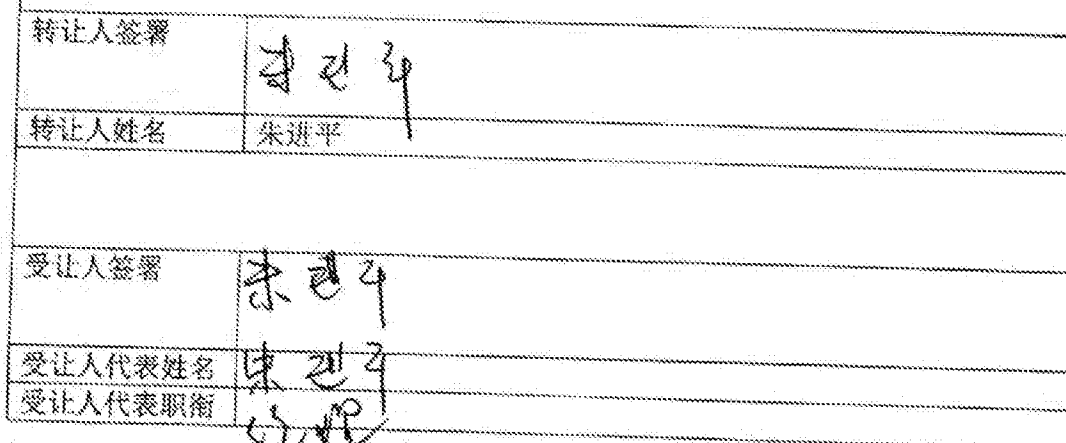 转让人签署
转让人姓名 朱进平
受让人签署 朱进平
受让人代表姓名 朱进平
受让人代表职衔